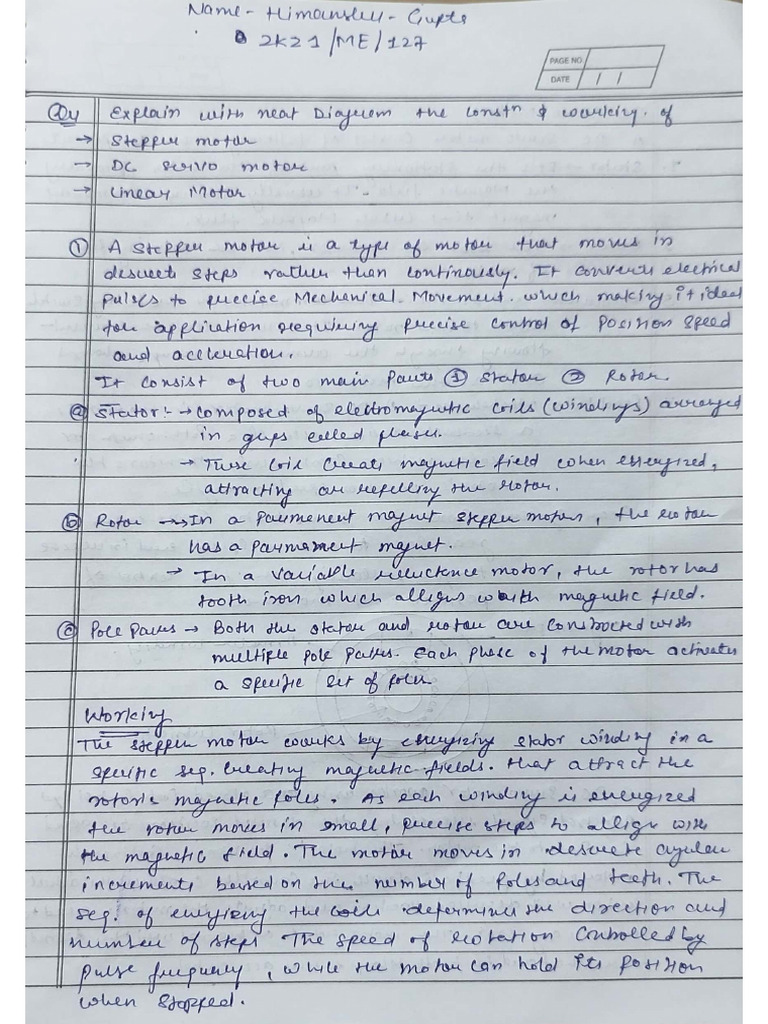 Name - Himanshu - Gupta
2K21/ME/127
PAGE NO
DATE / /
Q4 Explain with neat Diagram the constn & working of
→ Stepper motor
→ DC servo motor
→ Linear Motor
① A stepper motor is a type of motor that moves in
descrete steps rather than continously. It converts electrical
pulses to precise Mechanical Movement. which making it ideal
for application requiring precise control of position speed
and accleration.
It consist of two main parts ① Stator ② Rotor.
ⓐ Stator :- → Composed of electromagnetic coils (windings) arranged
in grups called phases.
→ These coil creats magnetic field when energized,
attracting or repelling the rotor.
ⓑ Rotor → In a parmenent magnet stepper motors, the rotor
has a parmanent magnet.
→ In a variable reluctance motor, the rotor has
tooth iron which alligns with magnetic field.
ⓒ Pole Paires → Both the stator and rotor are constructed with
multiple pole paires. Each phase of the motor activates
a specific set of poles
Working
The stepper motor works by energizing stator winding in a
specific seq. creating magnetic fields. that attract the
rotor's magnetic poles. As each winding is energized
the rotor moves in small, precise steps to allign with
the magnetic field. The motor moves in descrete angular
increments based on the number of poles and teeth. The
seq. of energizing the coils determines the direction and
number of steps The speed of rotation controlled by
pulse frequency, while the motor can hold its position
when stopped.